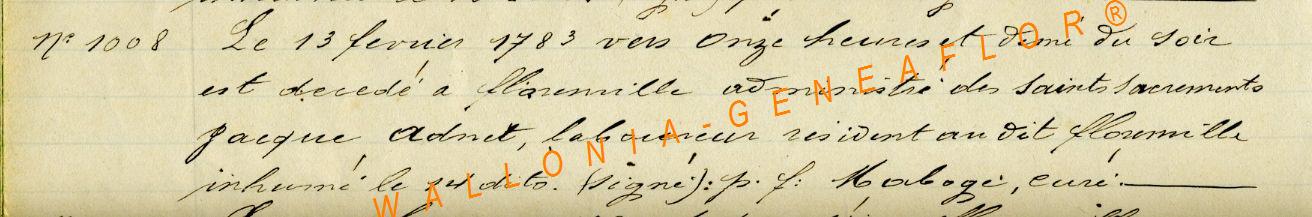 N° 1008 Le 13 fevrier 1783 vers onze heures et demi du soir
est decedé a florenville administré des saints sacrements
Jacque Adnet, laboureur résident au dit florenville
inhumé le 14 dito. (signé): p. f: Maboge, curé.
WALLONIA-GENEAFLOR®